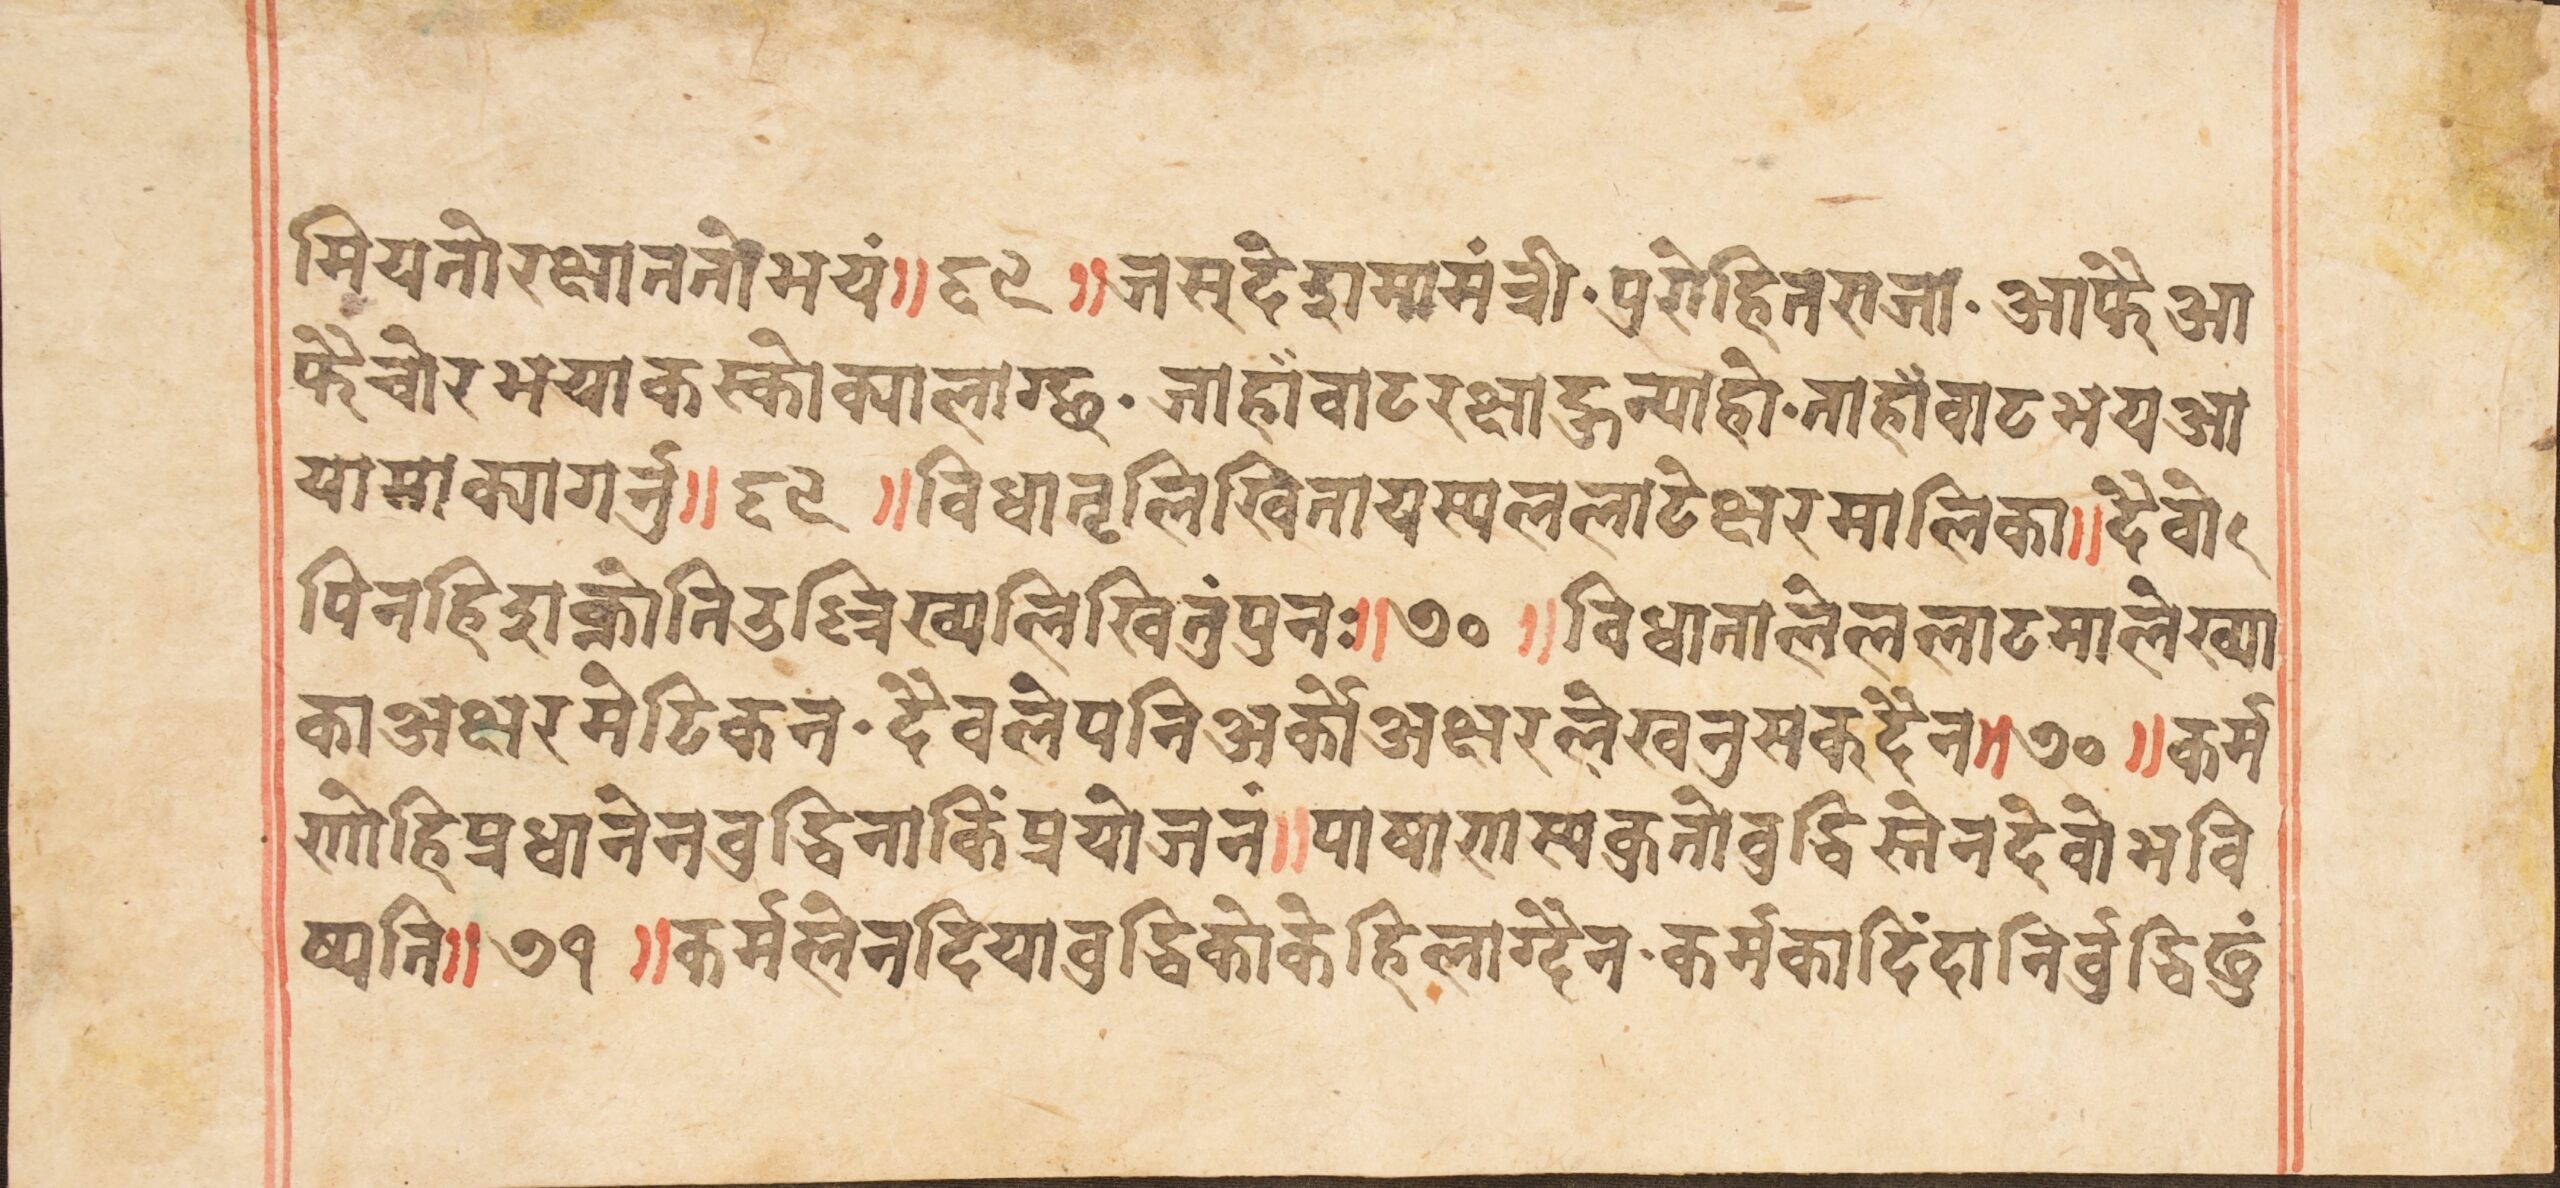 मियतोरक्षाततोभयं॥६९॥जस्देशमामंत्री·पुरोहितराजा·आफैआ
फैचोरभयाकस्कोक्यालाग्छ·जाहाँवाटरक्षाहुन्याहो·ताहाँवाटभयआ
यामाक्यागर्नु॥६९॥विधातृलिखितायस्यललाटेक्षरमालिका॥दैवोऽ
पिनहिशक्नोतिउल्लिख्यलिखितुंपुनः॥७०॥विधातालेललाटमालेख्या
काअक्षरमेटिकन·दैवलेपनिअर्कोअक्षरलेखनुसक्दैन॥७०॥कर्म
णोहिप्रधानेनवुद्धिनाकिंप्रयोजनं॥पाषाणस्यकुतोवुद्धिस्तेनदेवोभवि
ष्यति॥७१॥कर्मलेनदियावुद्धिकोकेहिलाग्दैन·कर्मकादिंदानिर्वुद्धिढुं